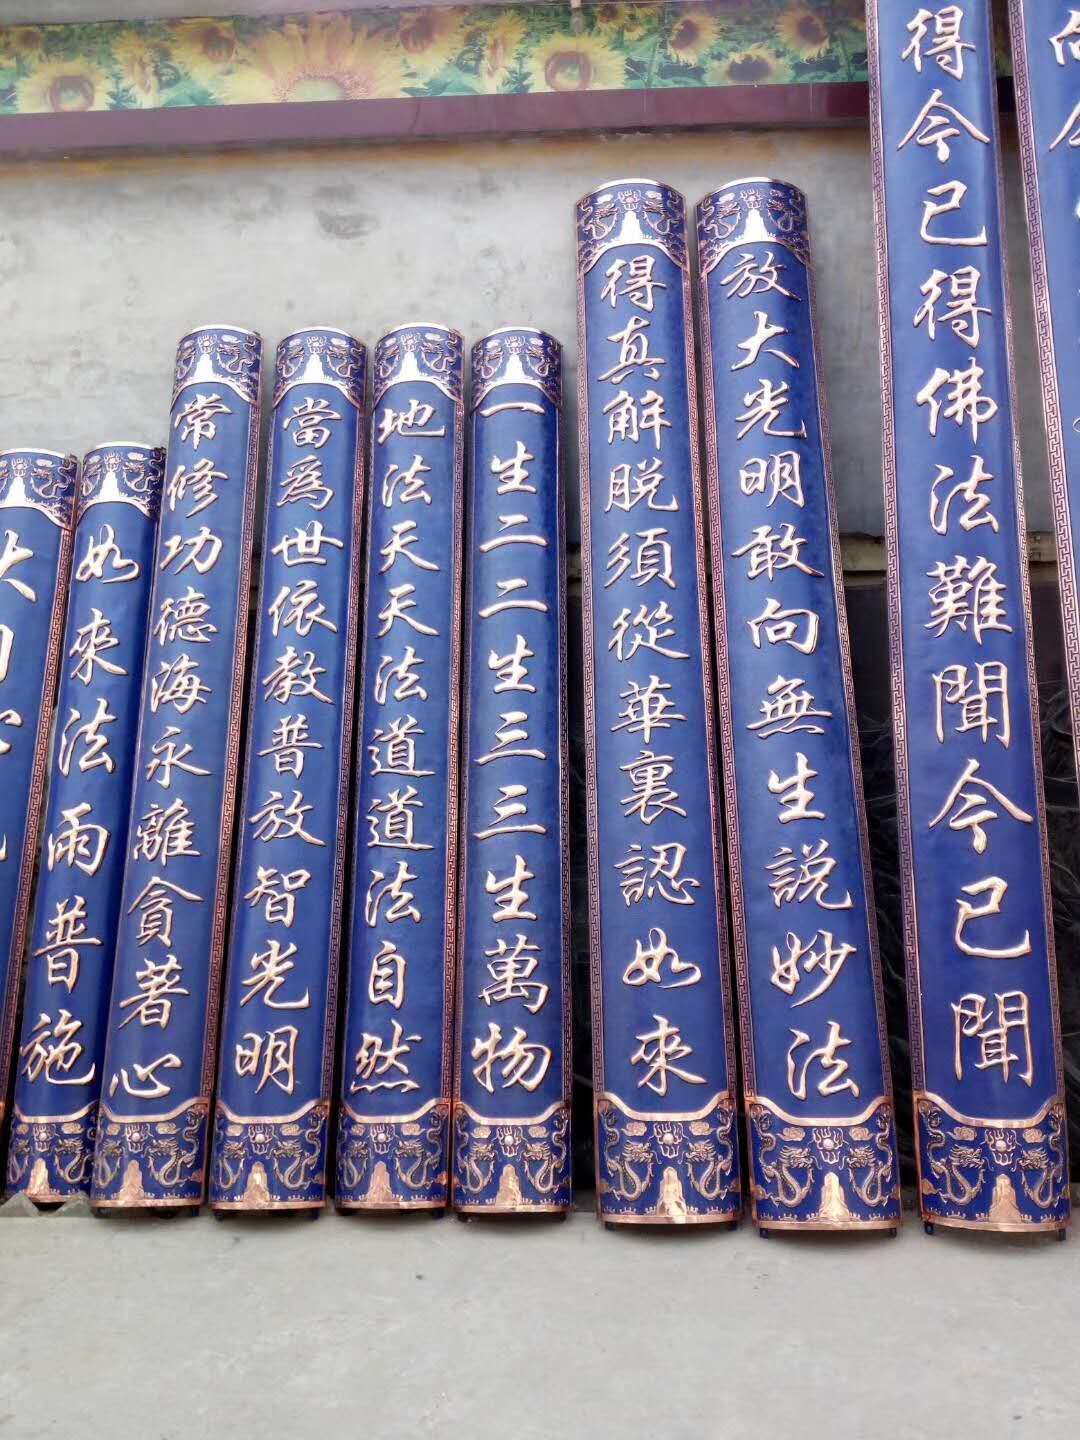 得今已得佛法難聞今已聞
放大光明敢向無生説妙法
得真解脱須從華裏認如來
一生二二生三三生萬物
地法天天法道道法自然
當為世依教普放智光明
常修功德海永離貪著心
如來法雨普施